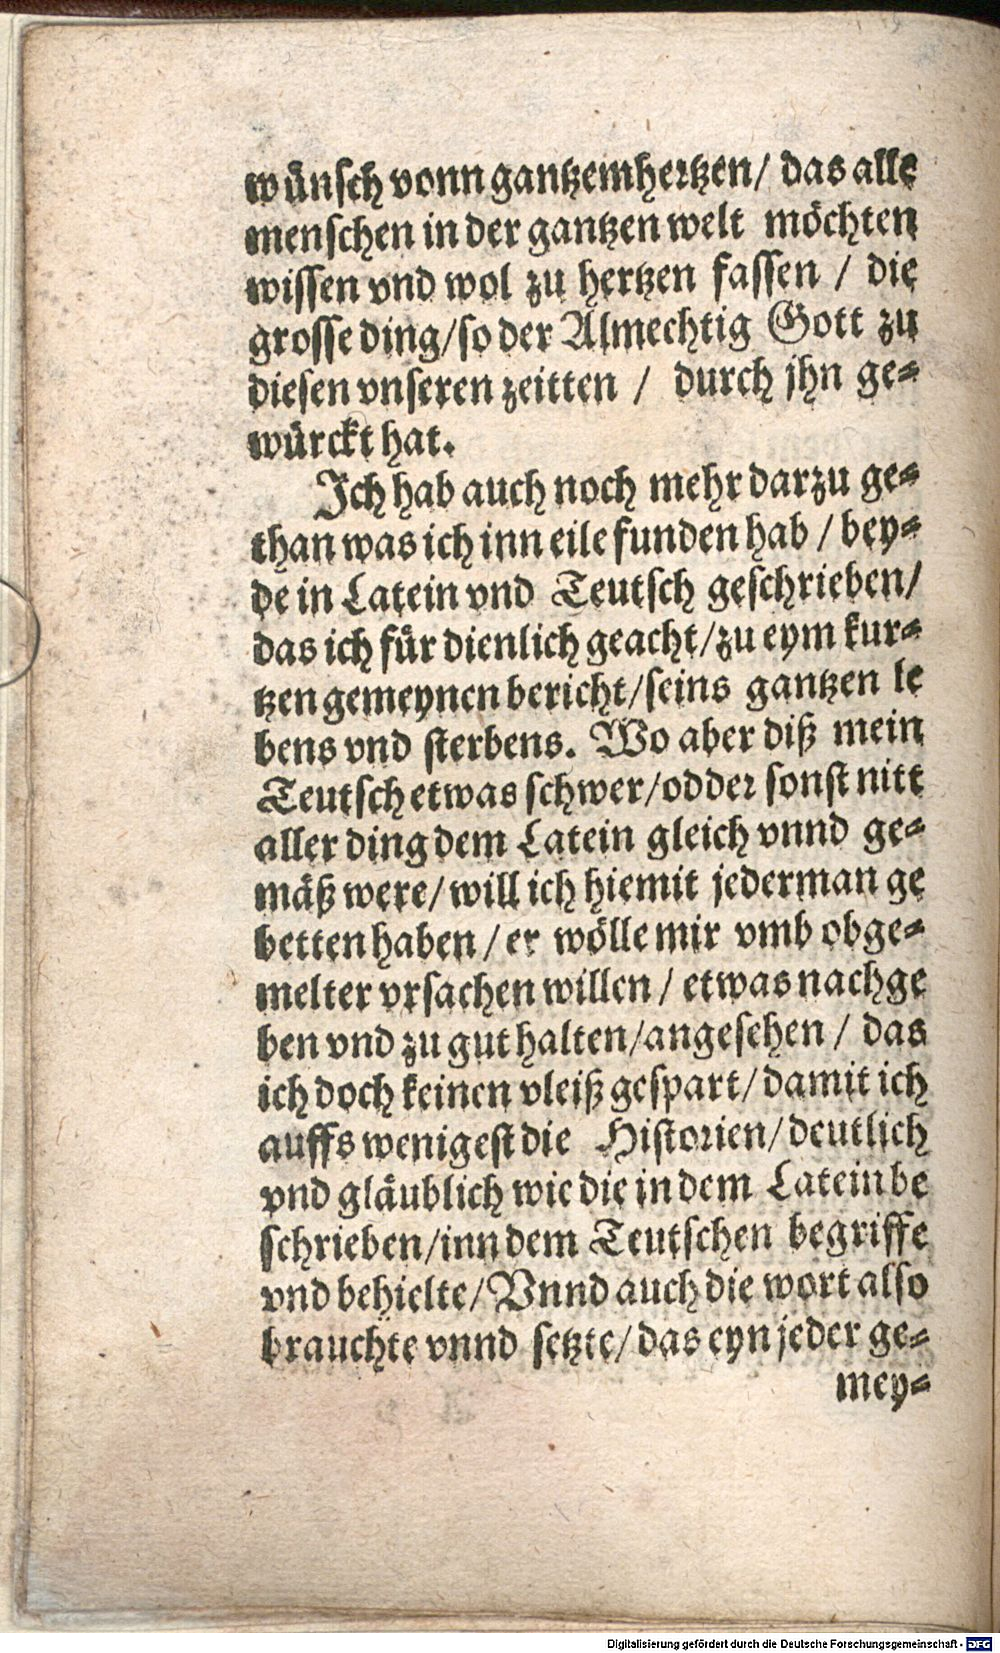 wünsch vonn gantzem hertzen / das alle
menschen in der gantzen welt möchten
wissen vnd wol zu hertzen fassen / die
grosse ding / so der Almechtig Gott zu
diesen vnseren zeitten / durch jhn ge⸗
würckt hat.
Ich hab auch noch mehr darzu ge⸗
than was ich inn eile funden hab / bey⸗
de in Latein vnd Teutsch geschrieben /
das ich für dienlich geacht / zu eym kur⸗
tzen gemeynen bericht / seins gantzen le
bens vnd sterbens. Wo aber diß mein
Teutsch etwas schwer / odder sonst nitt
aller ding dem Latein gleich vnnd ge⸗
mäß were / will ich hiemit jederman ge
betten haben / er wölle mir vmb obge⸗
melter vrsachen willen / etwas nachge
ben vnd zu gut halten / angesehen / das
ich doch keinen vleiß gespart / damit ich
auffs wenigest die Historien / deutlich
vnd gläublich wie die in dem Latein be
schrieben / inn dem Teutschen begriffe
vnd behielte / Vnnd auch die wort also
brauchte vnnd setzte / das eyn jeder ge⸗
mey⸗
Digitalisierung gefördert durch die Deutsche Forschungsgemeinschaft - DFG